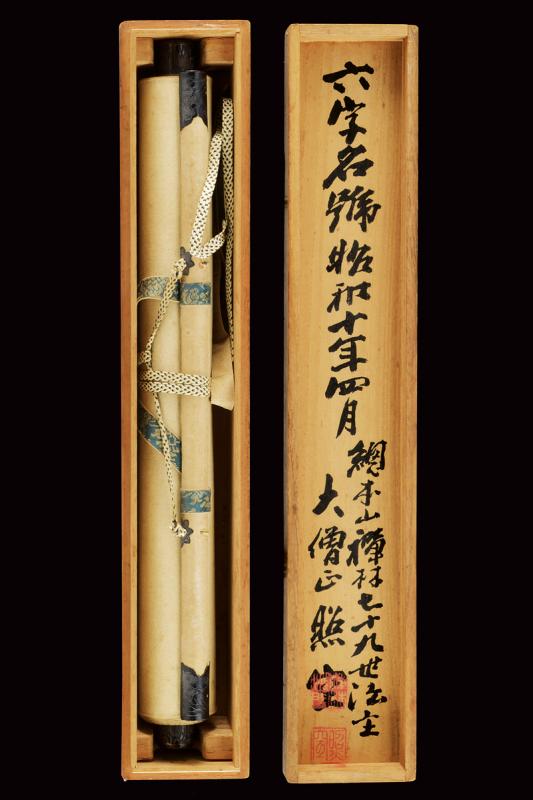 六字名號 昭和十年四月
總本山禪林七十九世法主
大僧正 照空